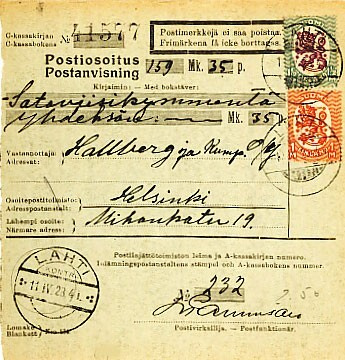 C-kassakirjan
C-kassabokens
No 41577
Postimerkkejä ei saa poistaa.
Frimärkena få icke borttagas.
Postiosoitus
Postanvisning
159 Mk. 35 p.
Kirjaimin: — Med bokstäver:
Satayhdeksän: — Mk. 35 p.
Vastaanottaja:
Adressat:
Hallberg ja Kump. O/Y
Osoitepostitoimisto:
Adresspostanstalt:
Helsinki
Lähempi osoite:
Närmare adress:
Mikonkatu 19.
Postilejättötoimiston leima ja A-kassakirjan numero.
Inlämningspostanstaltens stämpel och A-kassabokens nummer.
LAHTI
11.IV.23
No 232
Lomake
Blankett
Postivirkailija. — Postfunktionär.